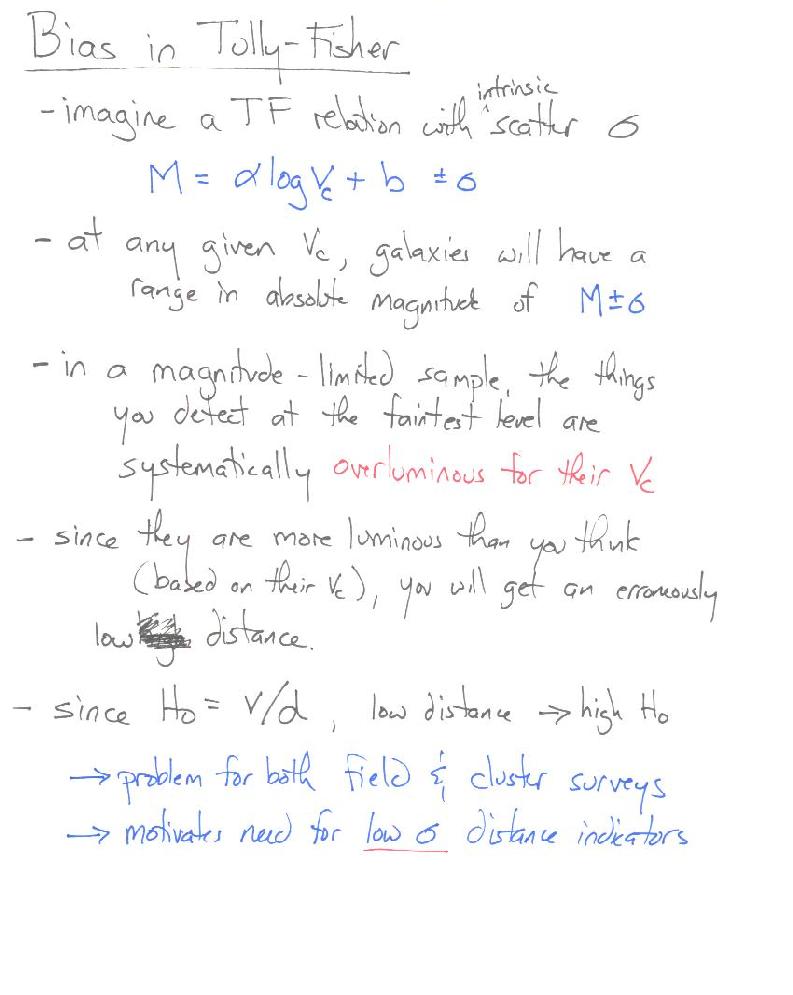 Bias in Tully-Fisher
- imagine a TF relation with ^intrinsic scatter σ
M = α log Vc + b ± σ
- at any given Vc, galaxies will have a
range in absolute magnitude of M±σ
- in a magnitude-limited sample, the things
you detect at the faintest level are
systematically overluminous for their Vc
- since they are more luminous than you think
(based on their Vc), you will get an erroneously
low distance.
- since H₀ = v/d, low distance → high H₀
→ problem for both field & cluster surveys
→ motivates need for low σ distance indicators